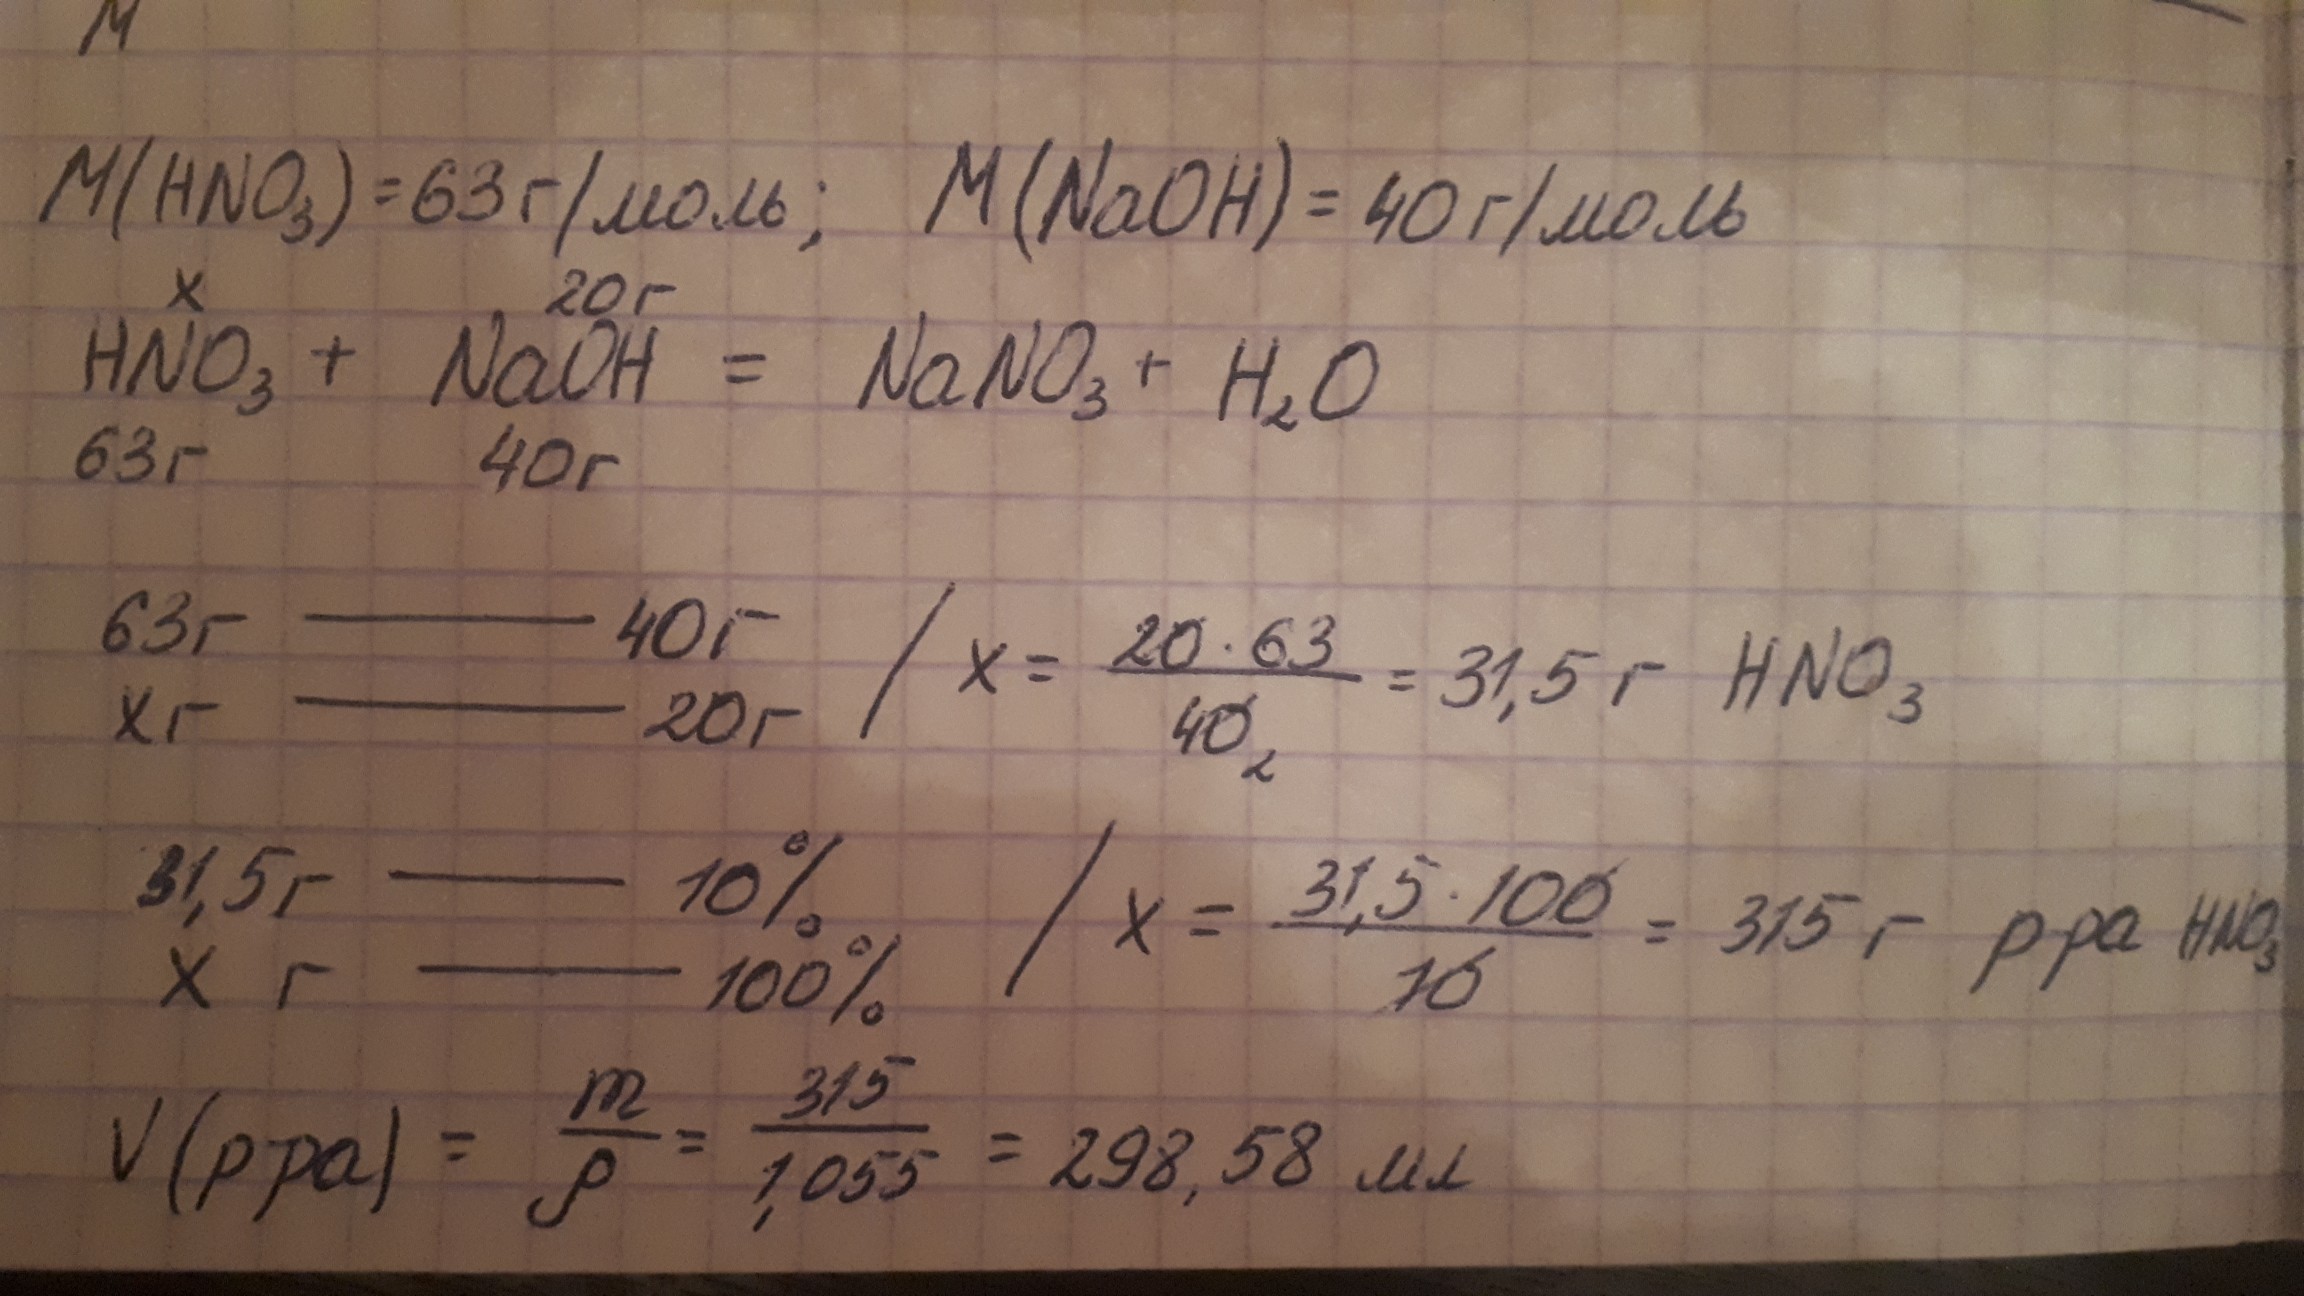 М
M(HNO₃) = 63 г/моль; M(NaOH) = 40 г/моль
x 20г
HNO₃ + NaOH = NaNO₃ + H₂O
63г 40г
63г — 40г / x = 20·63/40 2 = 31,5 г HNO₃
xг — 20г
31,5г — 10% / x = 31,5·100/10 = 315 г р-ра HNO₃
x г — 100%
V(р-ра) = m/ρ = 315/1,055 = 298,58 мл